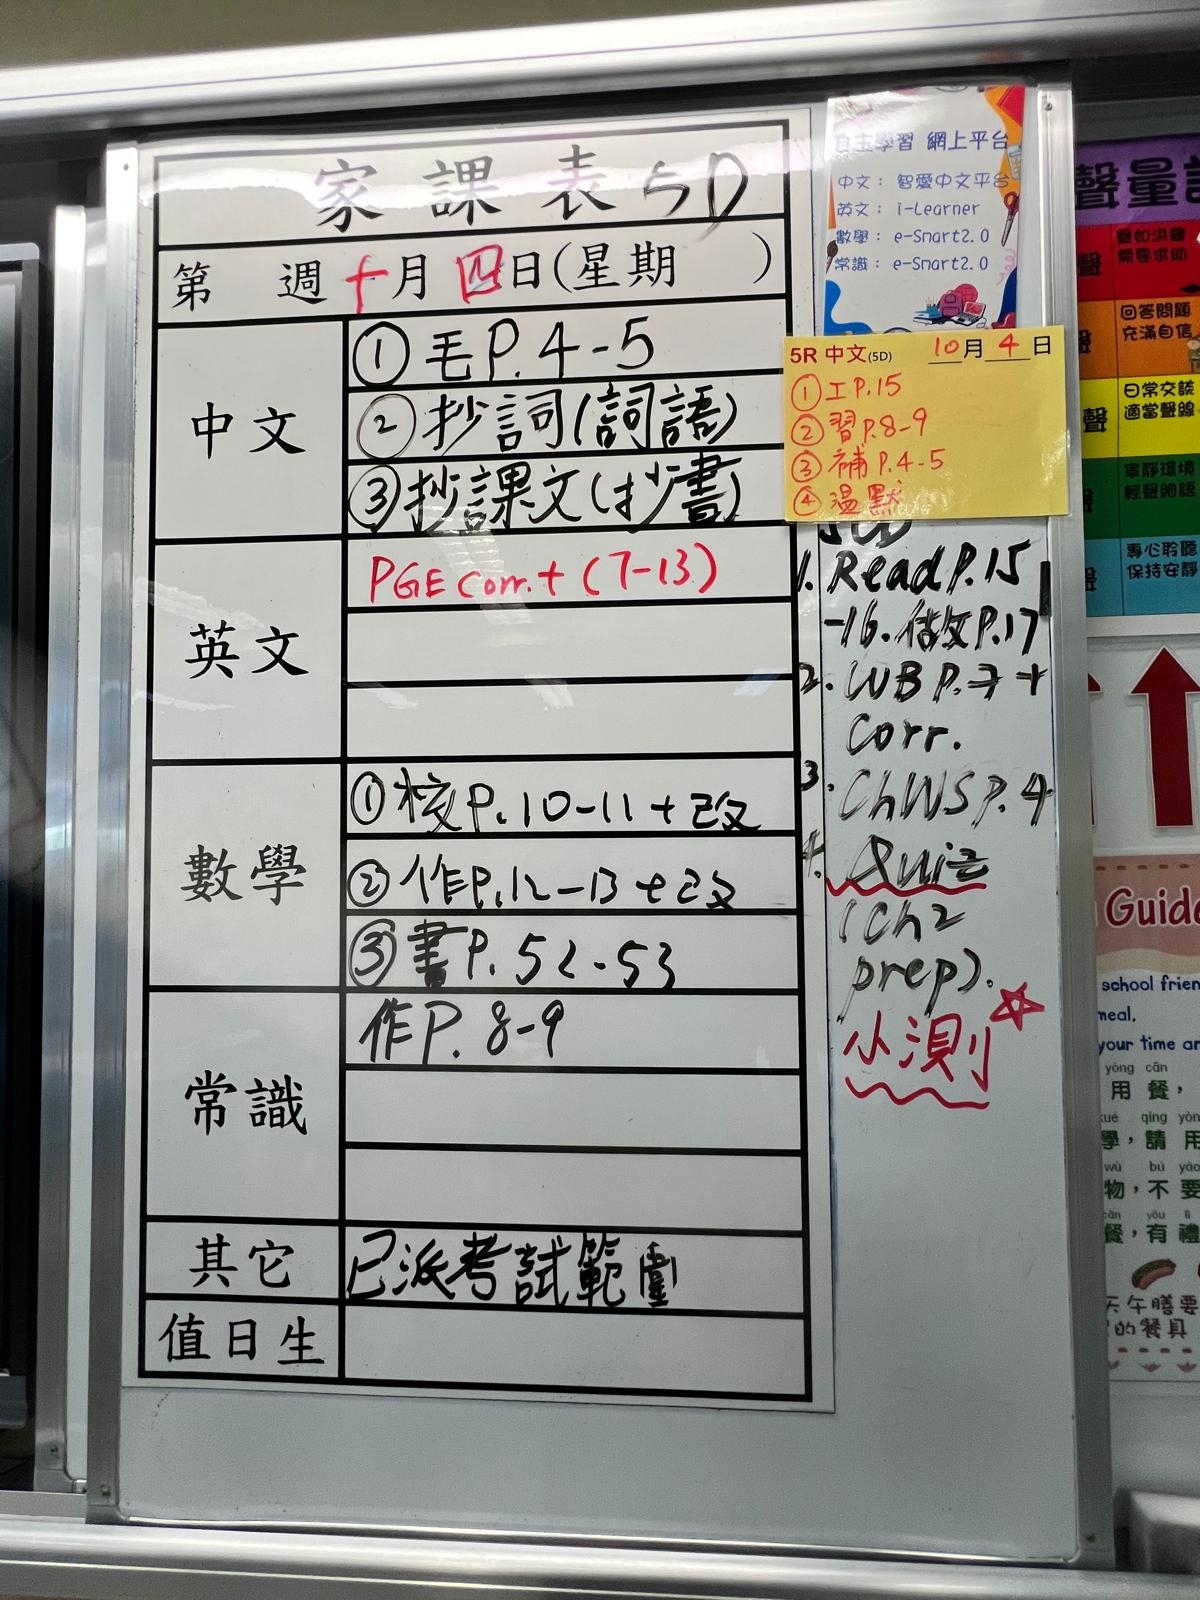 家課表 5D
第 週 十月 四日(星期 )
中文
①毛P.4-5
②抄詞(詞語)
③抄課文(抄書)
英文
PGE corr.+(7-13)
數學
①校P.10-11+改
②作P.12-13+改
③書P.52-53
常識
作P. 8-9
其它
已派考試範圍
值日生
自主學習 網上平台
中文: 智愛中文平台
英文: i-Learner
數學: e-Smart2.0
常識: e-Smart2.0
5R 中文(5D) 10月 4 日
①工P.15
②習P.8-9
③補P.4-5
④溫默
1. Read P.15
-16. 做P.17
2. WB P.7+
Corr.
3. Ch WS P.4
4. Quiz
(Ch2
prep).
小測
聲量
聲如洪鐘
需要求助
聲
回答問題
充滿自信
日常交談
適當聲線
聲
寧靜環境
輕聲細語
聲
專心聆聽
保持安靜
聲
Guide
school frien
meal.
your time an
yòng cān
用餐,
qǐng yòn
學,請用
wù bú yào
物,不要
cān yǒu lǐ
餐,有禮
天午膳要
的餐具